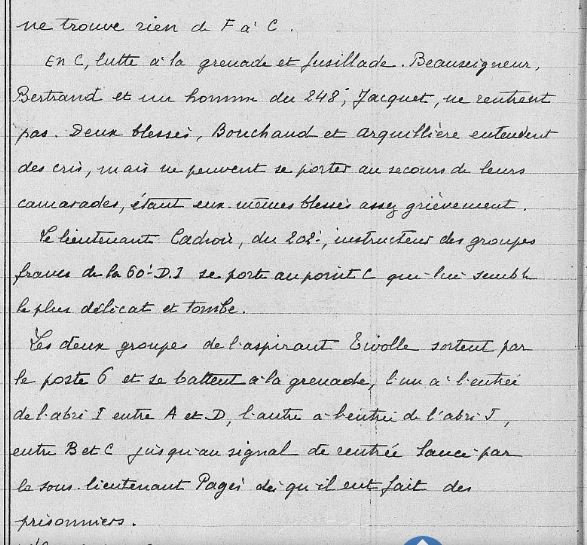 ne trouve rien de F à C.
En C, lutte à la grenade et fusillade. Beauseigneur,
Bertrand et un homme du 248e, Jacquet, ne rentrent
pas. Deux blessés, Bouchaud et Arquillière entendent
des cris, mais ne peuvent se porter au secours de leurs
camarades, étant eux-mêmes blessés assez grièvement.
Le lieutenant Cadroir, du 202e, instructeur des groupes
francs de la 60e D.I se porte au point C qui lui semble
le plus délicat et tombe.
Les deux groupes de l'aspirant Eivolle sortent par
le poste 6 et se battent à la grenade, l'un à l'entrée
de l'abri I entre A et D, l'autre à l'entrée de l'abri J,
entre B et C jusqu'au signal de rentrée lancé par
le sous-lieutenant Pagès dès qu'il eut fait des
prisonniers.